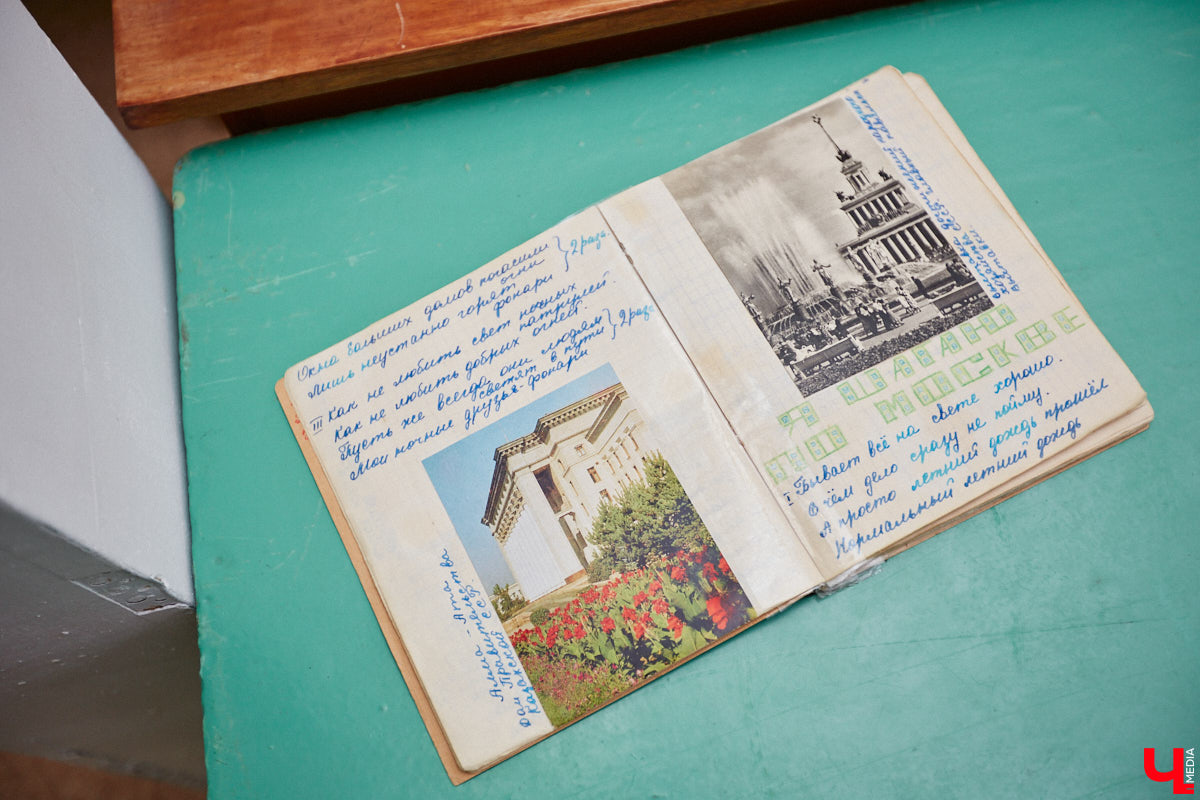 Окна больших домов погасили огни
Лишь неустанно горят фонари } 2 раза.
III Как не любить свет ночных патрулей.
Как не любить добрых огней.
Пусть же всегда они людям
светят в пути } 2 раза
Мои ночные друзья-фонари
Алма-Ата
Дом Правительства
Казахской ССР.
выставка Достижений народного
хозяйства СССР. главный павильон
выставки
А Я ШАГАЮ
ПО МОСКВЕ
I Бывает всё на свете хорошо.
В чём дело сразу не пойму.
А просто летний дождь прошёл
Нормальный летний дождь
Ч MEDIA